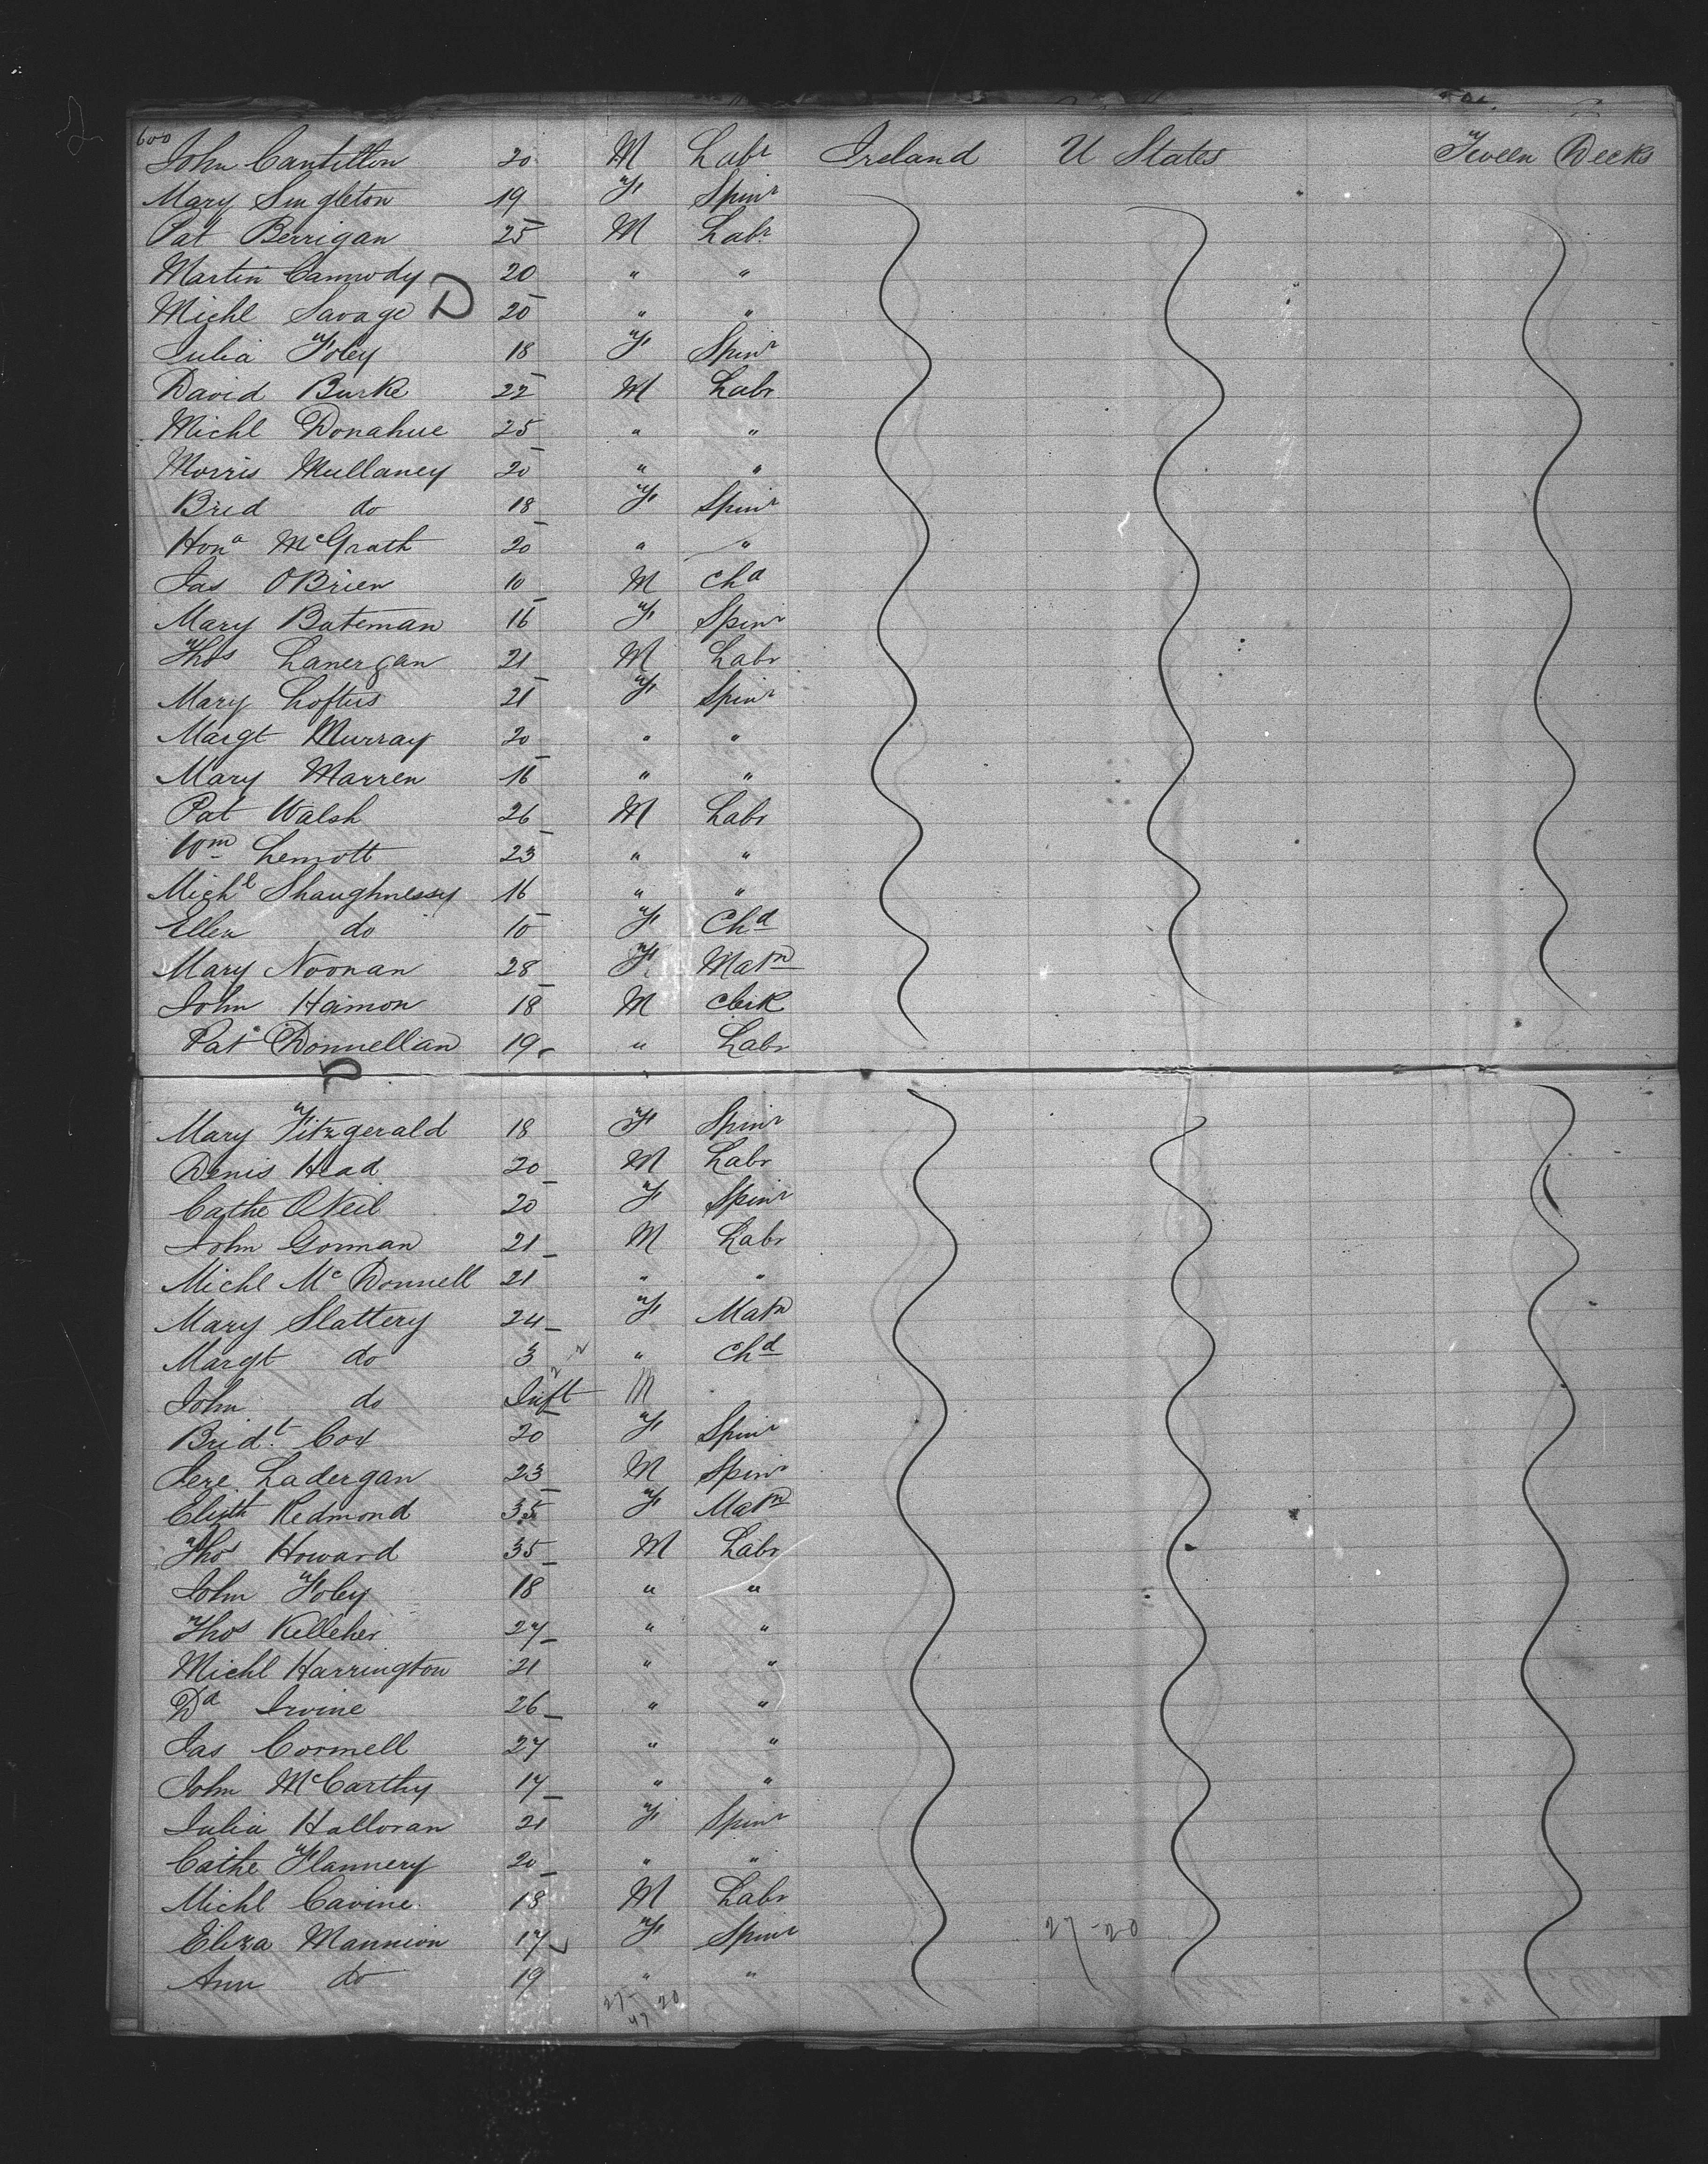 600
John Cantillon 20 M Labr Ireland U States Tween Decks
Mary Singleton 19 F Spinr
Pat Berrigan 25 M Labr
Martin Carmody 20 " "
Michl Savage D 20 " "
Julia Foley 18 F Spinr
David Burke 22 M Labr
Michl Donahue 25 " "
Morris Mullaney 20 " "
Brid do 18 F Spinr
Hona McGrath 20 " "
Jas OBrien 10 M Chd
Mary Bateman 16 F Spinr
Thos Lanergan 21 M Labr
Mary Loftus 21 F Spinr
Margt Murray 20 " "
Mary Marren 16 " "
Pat Walsh 26 M Labr
Wm Lemott 23 " "
Michl Shaughnessy 16 " "
Ellen do 10 F Chd
Mary Noonan 28 F Matn
John Hamon 18 M Clerk
Pat Donnellan 19 " Labr
Mary Fitzgerald 18 F Spinr
Denis Head 20 M Labr
Cathe ONeil 20 F Spinr
John Gorman 21 M Labr
Michl McDonnell 21 " "
Mary Slattery 24 F Matn
Margt do 3 " Chd
John do Inft M
Bridt Cox 20 F Spinr
Jere Ladergan 23 M Spinr
Elizth Redmond 35 F Matn
Thos Howard 35 M Labr
John Foley 18 " "
Thos Kelleher 27 " "
Michl Harrington 21 " "
Dd Irvine 26 " "
Jas Cormell 27 " "
John McCarthy 17 " "
Julia Halloran 21 F Spinr
Cathe Flannery 20 " "
Michl Cavine 18 M Labr
Eliza Mannion 17 F Spinr 27-20
Ann do 19 " "
27-20
47